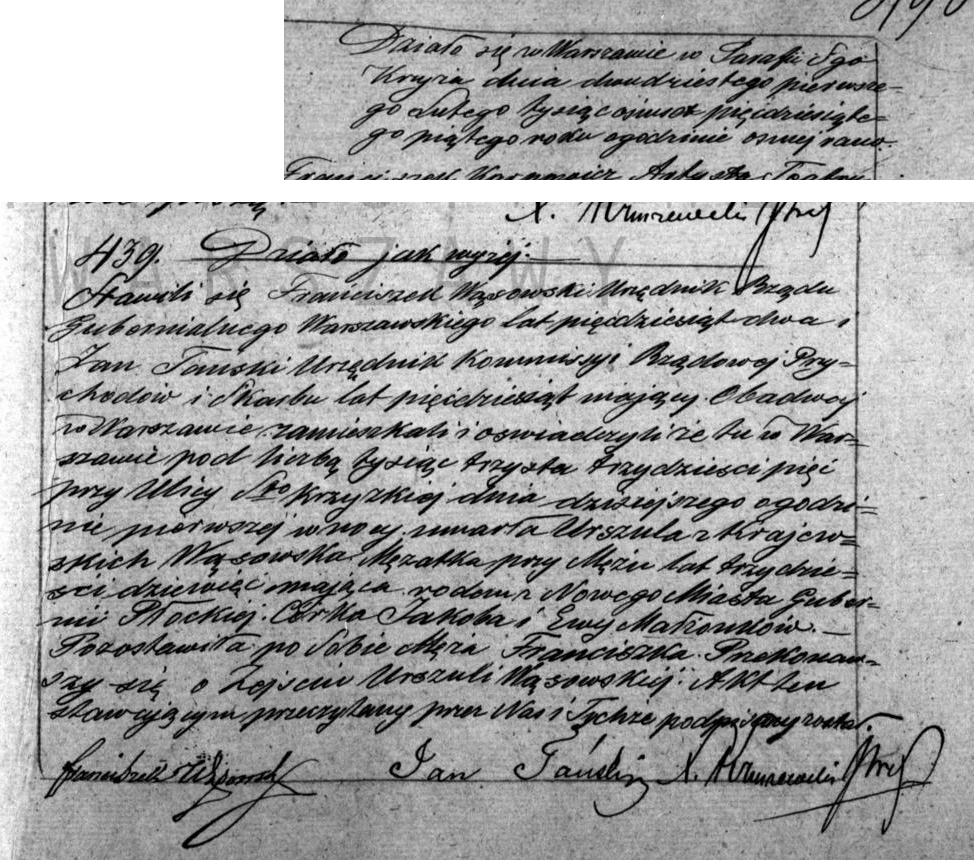 Działo się w Warszawie w Parafii Sgo
Krzyża dnia dwudziestego pierwsze=
go Lutego tysiąc ośmset pięćdziesiąte=
go piątego roku o godzinie ósmej rano.
Artysta Teatru
WARSZAWY
439. Działo jak wyżej.
Stawili się Franciszek Wąsowski Urzędnik Rządu
Gubernialnego Warszawskiego lat pięćdziesiąt dwa i
Jan Tański Urzędnik Kommissyi Rządowej Przy=
chodów i Skarbu lat pięćdziesiąt mający Obadwaj
w Warszawie zamieszkali i oświadczyli że tu w War=
szawie pod liczbą tysiąc trzysta trzydzieści pięć
przy Ulicy Sto Krzyzkiej dnia dzisiejszego o godzi=
nie pierwszej w nocy, umarła Urszula z Krajew=
skich Wąsowska Mężatka przy Mężu lat trzydzie=
ści dziewięć mająca rodem z Nowego Miasta Guber=
nii Płockiej. Córka Jakoba i Ewy Małżonków. —
Pozostawiła po Sobie Męża Franciszka. Przekonaw=
szy się o Zejściu Urszuli Wąsowskiej. Akt ten
stawającym przeczytany przez Nas i Tychże podpisany został.
Franciszek Wąsowski Jan Tański X.